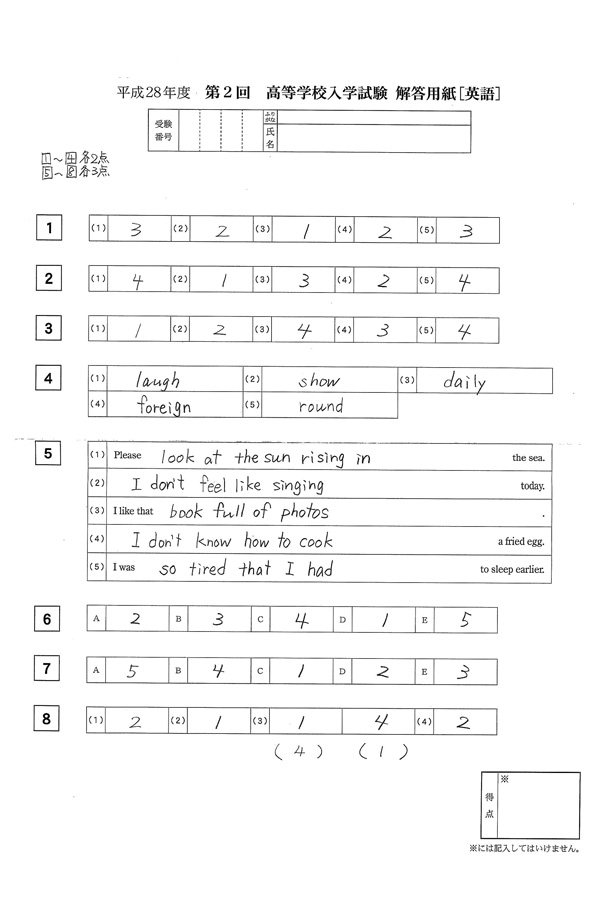 平成28年度 第2回 高等学校入学試験 解答用紙[英語]
受験番号 ふりがな 氏名
1~4 各2点
5~8 各3点
1 (1) 3 (2) 2 (3) 1 (4) 2 (5) 3
2 (1) 4 (2) 1 (3) 3 (4) 2 (5) 4
3 (1) 1 (2) 2 (3) 4 (4) 3 (5) 4
4 (1) laugh (2) show (3) daily
(4) foreign (5) round
5 (1) Please look at the sun rising in the sea.
(2) I don't feel like singing today.
(3) I like that book full of photos .
(4) I don't know how to cook a fried egg.
(5) I was so tired that I had to sleep earlier.
6 A 2 B 3 C 4 D 1 E 5
7 A 5 B 4 C 1 D 2 E 3
8 (1) 2 (2) 1 (3) 1 4 (4) 2
(4) (1)
得点 ※
※には記入してはいけません。